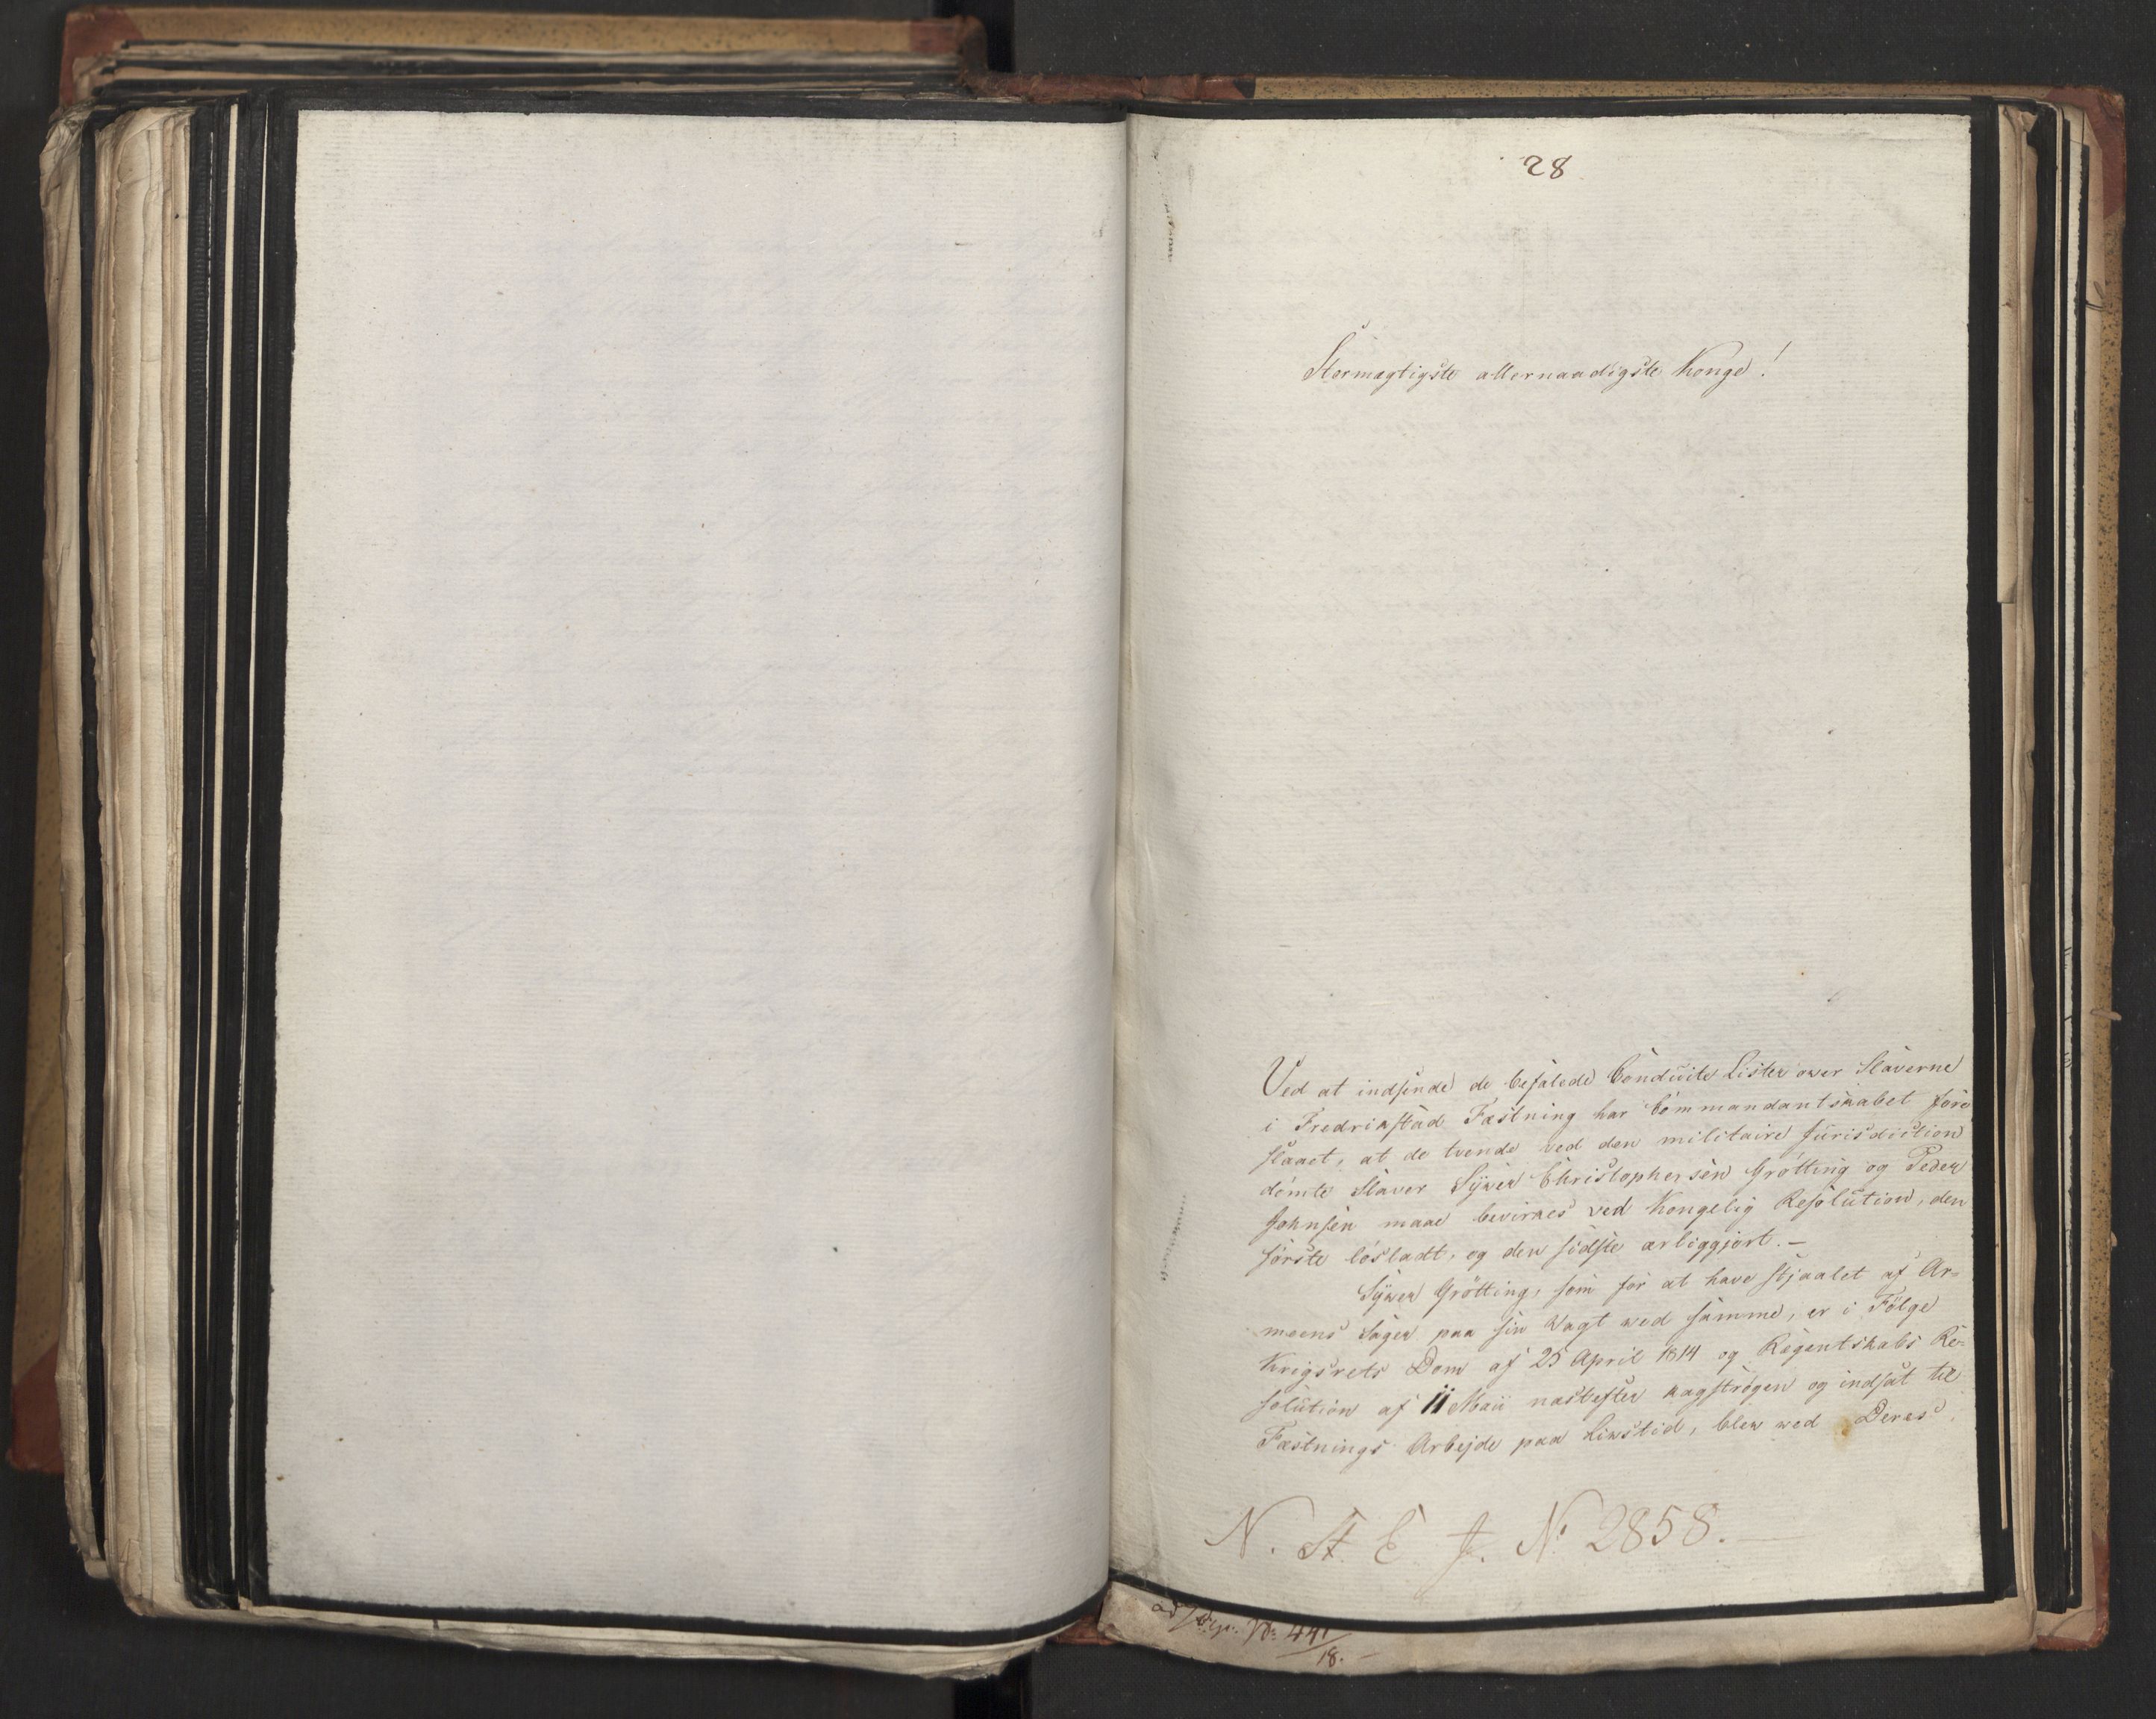 28
Stormægtigste allernaadigste Konge!
Ved at indsende de befalede Conduite Lister over Slaverne
i Fredrikstad Fæstning har Commandantskabet fore
slaaet, at de tvende ved den militaire Jurisdiction
dömte Slaver Syver Christophersen Grötting og Peder
Johnsen maae bevirkes ved Kongelig Resolution, den
förste lösladt, og den sidste ærliggjort. —
Syver Grötting, som for at have stjaalet af Ar-
meens Sager paa sin Vagt ved samme, er i Fölge
Krigsrets Dom af 25 April 1814 og Regentskabs Re-
solution af 11 Maii næstefter kagströgen og indsat til
Fæstnings Arbejde paa Livstid, blev ved Deres
N. St. E. J. No 2858. —
ad No 441
18. —